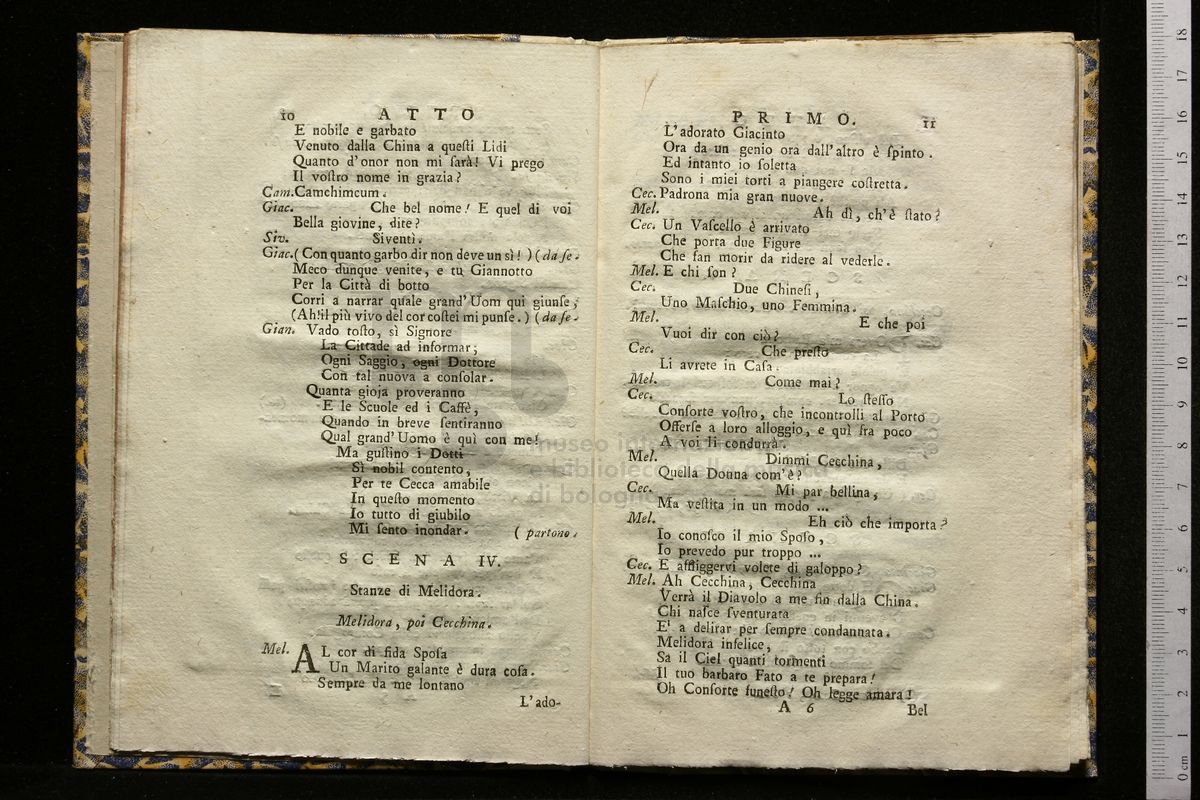 10 ATTO
E nobile e garbato
Venuto dalla China a queſti Lidi
Quanto d'onor non mi ſarà! Vi prego
Il voſtro nome in grazia?
Cam. Camchimcum.
Giac. Che bel nome! E quel di voi
Bella giovine, dite?
Siv. Siventì.
Giac. (Con quanto garbo dir non deve un sì!) (da ſe.
Meco dunque venite, e tu Giannotto
Per la Città di botto
Corri a narrar quale grand'Uom qui giunſe;
(Ah!il più vivo del cor coſtei mi punſe.) (da ſe.
Gian. Vado toſto, sì Signore
La Cittade ad informar;
Ogni Saggio, ogni Dottore
Con tal nuova a conſolar.
Quanta gioja proveranno
E le Scuole ed i Caffè,
Quando in breve ſentiranno
Qual grand'Uomo è quì con me!
Ma guſtino i Dotti
Sì nobil contento,
Per te Cecca amabile
In queſto momento
Io tutto di giubilo
Mi ſento inondar. (partono.
SCENA IV.
Stanze di Melidora.
Melidora, poi Cecchina.
Mel. AL cor di fida Spoſa
Un Marito galante è dura coſa.
Sempre da me lontano
L'ado-
PRIMO. 11
L'adorato Giacinto
Ora da un genio ora dall'altro è ſpinto.
Ed intanto io ſoletta
Sono i miei torti a piangere coſtretta.
Cec. Padrona mia gran nuove.
Mel. Ah dì, ch'è ſtato?
Cec. Un Vaſcello è arrivato
Che porta due Figure
Che fan morir da ridere al vederle.
Mel. E chi ſon?
Cec. Due Chineſi,
Uno Maſchio, uno Femmina.
Mel. E che poi
Vuoi dir con ciò?
Cec. Che preſto
Li avrete in Caſa.
Mel. Come mai?
Cec. Lo ſteſſo
Conſorte voſtro, che incontrolli al Porto
Offerſe a loro alloggio, e quì fra poco
A voi li condurrà.
Mel. Dimmi Cecchina,
Quella Donna com'è?
Cec. Mi par bellina,
Ma veſtita in un modo ...
Mel. Eh ciò che importa?
Io conoſco il mio Spoſo,
Io prevedo pur troppo ...
Cec. E affliggervi volete di galoppo?
Mel. Ah Cecchina, Cecchina
Verrà il Diavolo a me fin dalla China.
Chi naſce ſventurata
E' a delirar per ſempre condannata.
Melidora infelice,
Sa il Ciel quanti tormenti
Il tuo barbaro Fato a te prepara!
Oh Conſorte funeſto! Oh legge amara!
A 6 Bel